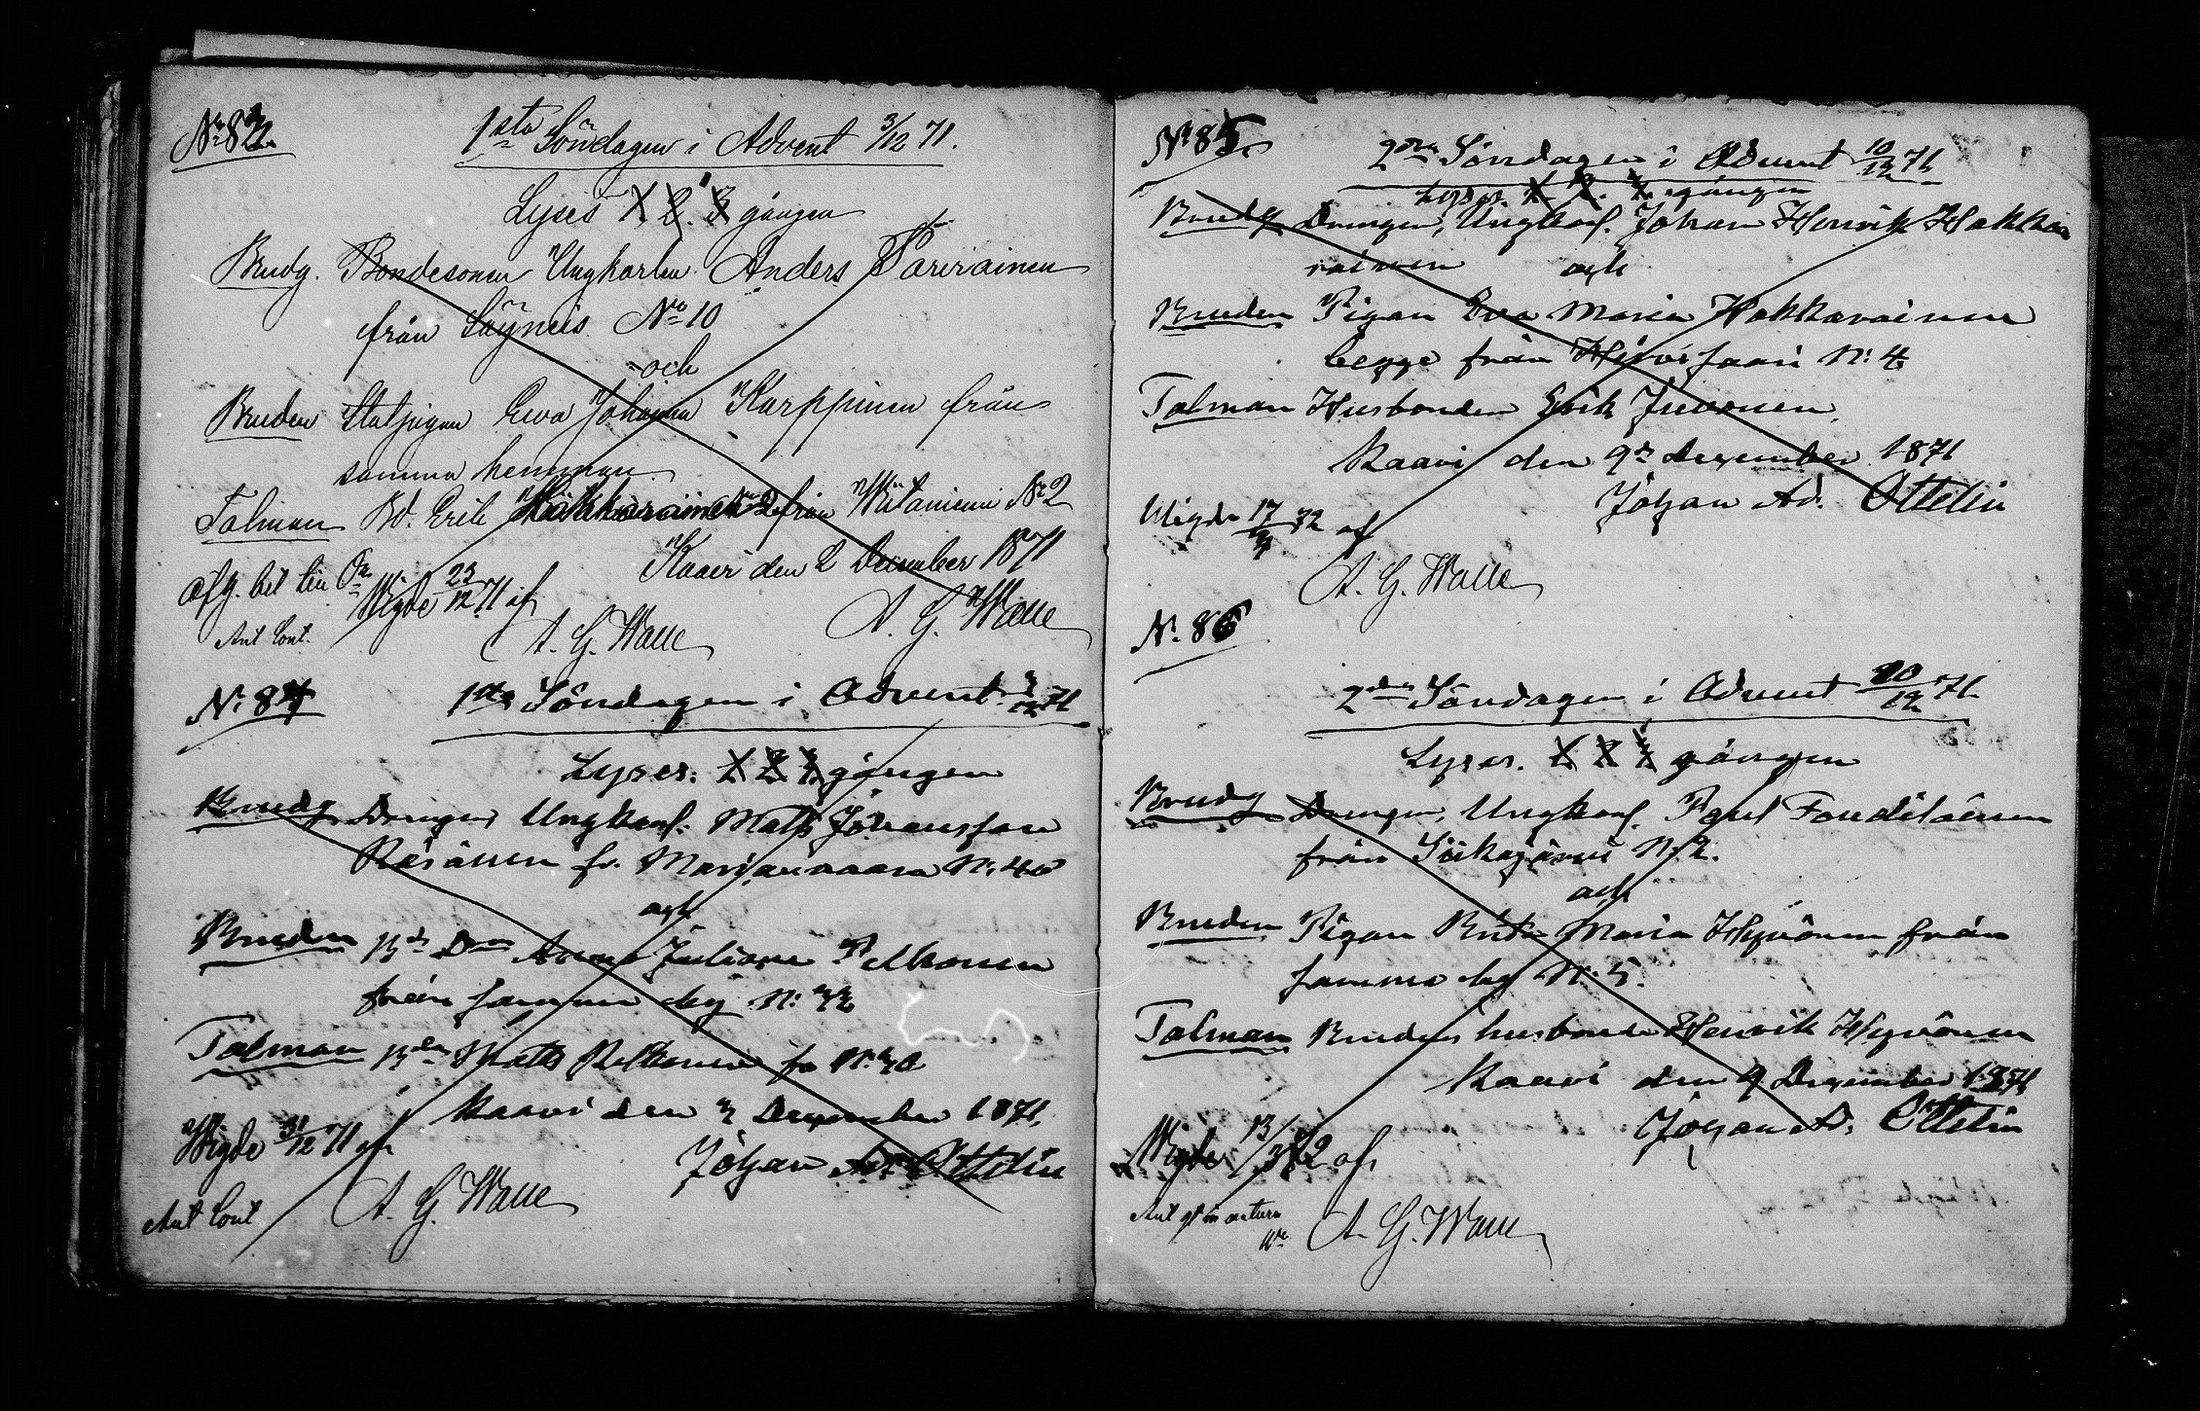 N:o 83.
1sta Söndagen i Advent 3/12 71.
Lyses 1. 2. 3 gången
Brudg. Bondesonen Ungkarlen Anders Parviainen
från Säyneis No 10
och
Bruden Statpigan Ewa Johanna Karppinen från
samma hemman
Talman Bd. Erik från Wiitaniemi No 2
Kaavi den 2 December 1871
A. G. Walle
afg. bet
Wigde 23/12 71 af
A. G. Walle
Ant Cont.
N: 84
1sta Söndagen i Advent 3/12 71
Lyses: 1. 2. 3. gången
Brudg Drängen Ungkarl. Mats Johansson
Räsänen fr. Marjovaara N: 40
och
Bruden Bd Dn Anna Juliana Pelkonen
från samma by N:
Talman Bdn Mats Pelkonen fr N:
Kaavi den 2 December 1871.
Johan Ad. Ottelin
Wigde 31/12 71 af
A. G. Walle
Ant Cont
N: 85
2dra Söndagen i Advent 10/12 71
Lyses. 1. 2. 3. gången
Brudg Drängen, Ungkarl. Johan Henrik Hakka-
rainen och
Bruden Pigan Eva Maria Hakkarainen
begge från Hirvisaari N: 4
Talman Husbonden Erik Juvonen.
Kaavi den 9de December 1871
Johan Ad. Ottelin
Wigde 17/3 72 af
A. G. Walle
N: 86
2dra Söndagen i Advent 10/12 71
Lyses. 1. 2. 3. gången
Brudg Drängen, Ungkarl. Paul Tondilainen
från Siikajärvi N: 2.
och
Bruden Pigan Brita Maria Hyvönen från
samma by N: 5.
Talman Brudens husbonde Henrik Hyvönen
Kaavi den 9 December 1871
Johan Ad. Ottelin
Wigde 13/3 72 af
A. G. Walle